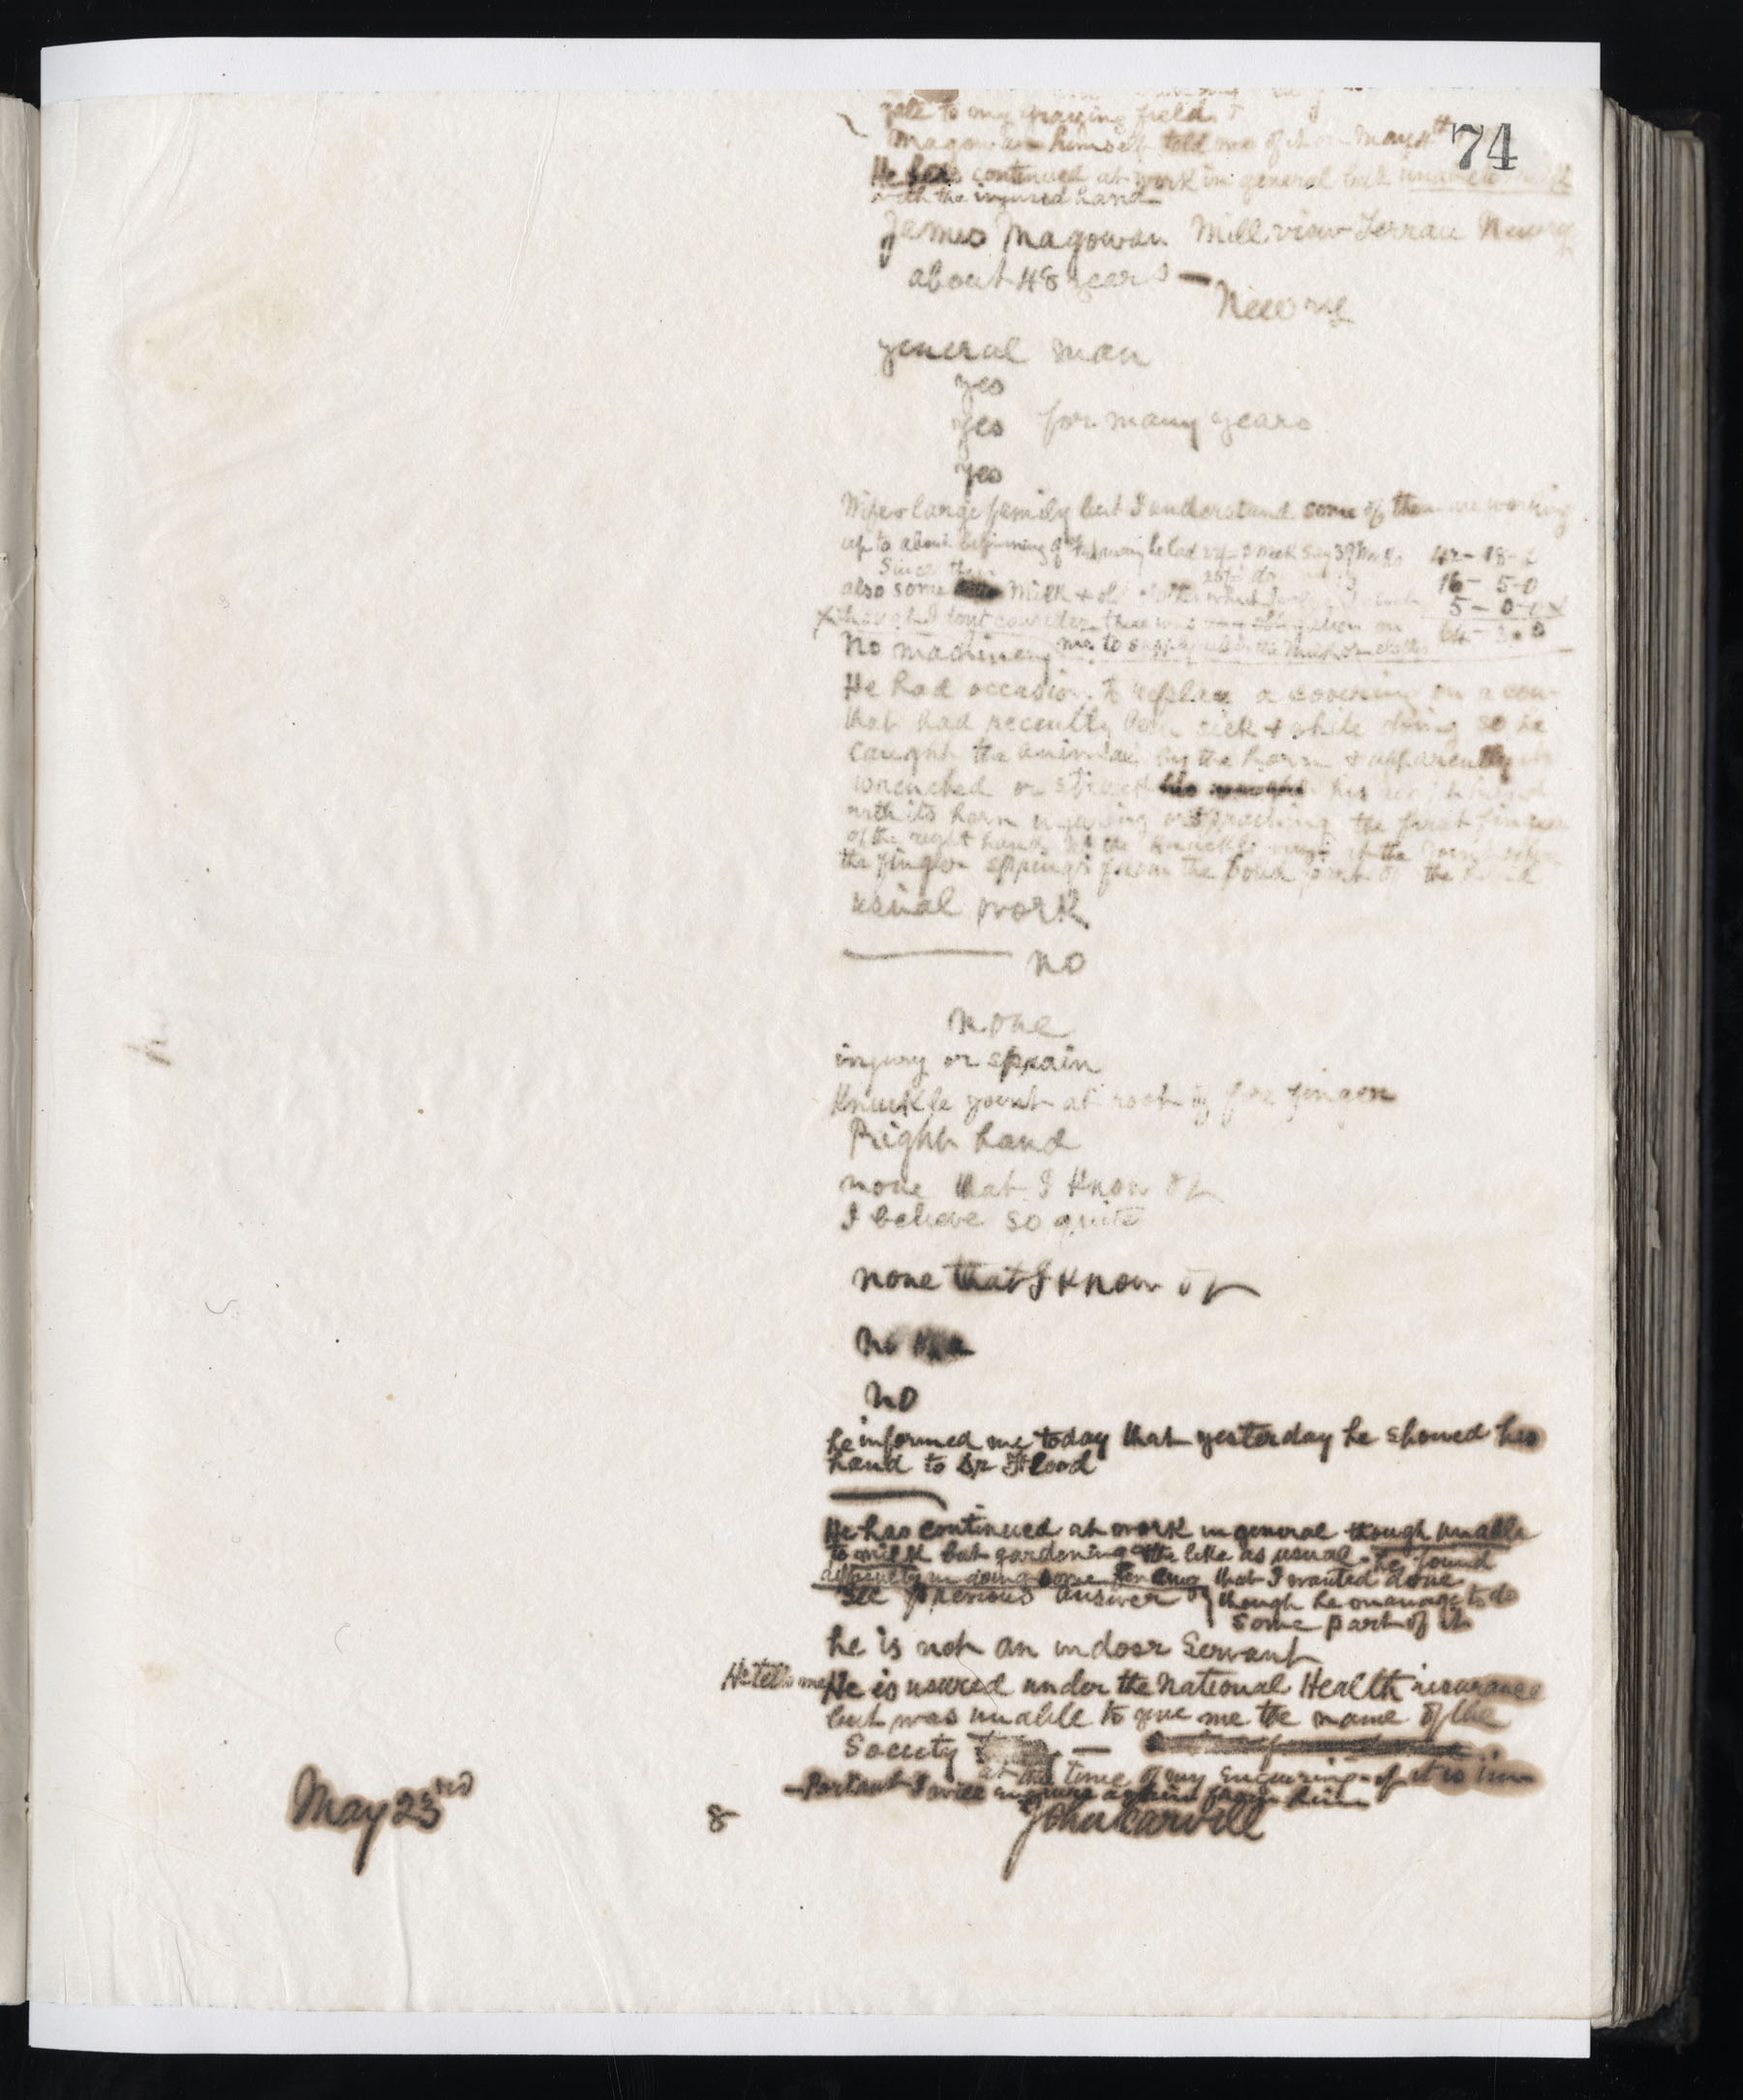 74
gate to my grazing field.
Magowan himself told me of it on May 4th
He has continued at work in general but unable to milk
with the injured hand
James Magowan Millview Terrace Newry
about 48 years —
Newry
general man
yes
yes for many years
yes
Wife & large family but I understand some of them are working
up to about beginning of he had a week say 39 weeks 42-18-
Since then 16-5-0
also some milk & old clothes which 5-0-0 x
x though I dont consider there was any obligation on 64-3-0
No machinery me to supply either the milk or clothes
He had occasion to replace a covering on a cow
that had recently been sick & while doing so he
caught the animal by the horn & apparently
wrenched or struck his right hand
with its horn injuring or spraining the first finger
of the right hand at the knuckle at the joint where
the finger springs from the solid part of the hand
usual work
no
none
injury or sprain
Knuckle joint at root of fore finger
Right hand
none that I know of
I believe so quite
none that I know of
no
no
he informed me today that yesterday he showed his
hand to Dr Flood
He has continued at work in general though unable
to milk but gardening & the like as usual - he found
difficulty in doing some fencing that I wanted done
See previous answer though he managed to do
some part of it
he is not an indoor Servant
He tells me He is insured under the National Health insurance
but was unable to give me the name of the
Society —
at the time of my enquiring - if it is im-
-portant I will enquire again from him
May 23rd 8 John Carvill